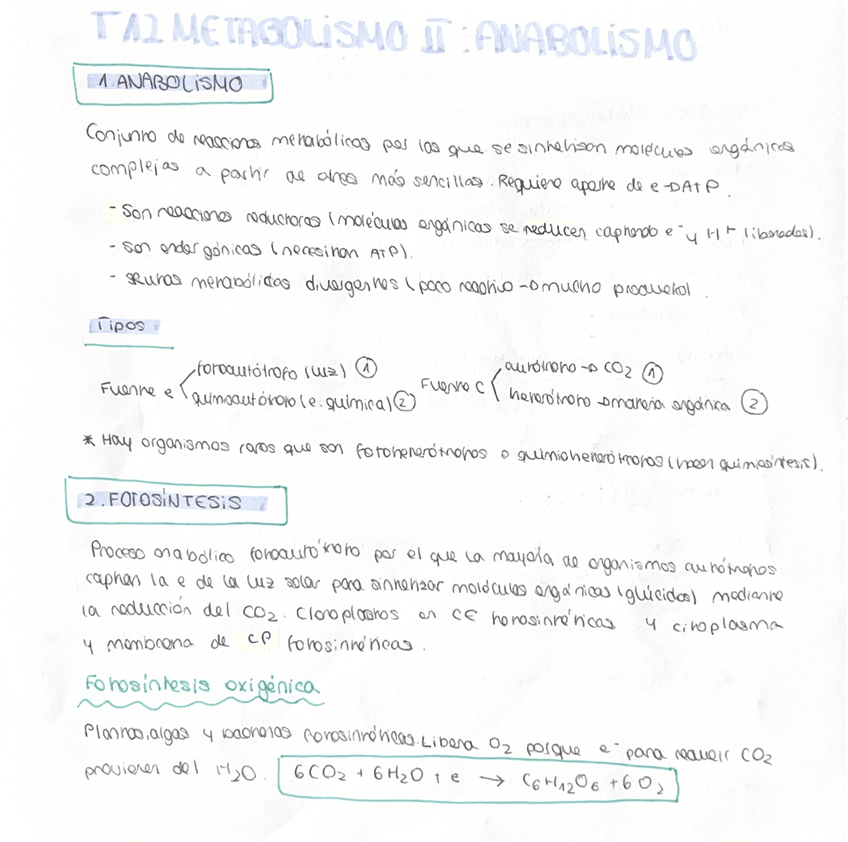 TA2 METABOLISMO II : ANABOLISMO
1. ANABOLISMO
Conjunto de reacciones metabólicas por las que se sintetizan moléculas orgánicas
complejas a partir de otras más sencillas. Requiere aporte de e → ATP.
- Son reacciones reductoras (moléculas orgánicas se reducen captando e⁻ y H⁺ liberados).
- Son endergónicas (necesitan ATP).
- Rutas metabólicas divergentes (poco reactivo → mucho producto).
Tipos
Fuente e fotoautótrofo (luz) ① quimioautótrofo (e. química) ②
Fuente C autótrofo → CO₂ ① heterótrofo → materia orgánica ②
* Hay organismos raros que son fotoheterótrofos o quimioheterótrofos (hacen quimiosíntesis).
2. FOTOSÍNTESIS
Proceso anabólico fotoautótrofo por el que la mayoría de organismos autótrofos
captan la e de la luz solar para sintetizar moléculas orgánicas (glúcidos) mediante
la reducción del CO₂. Cloroplastos en CE fotosintéticas y citoplasma
y membrana de CP fotosintéticas.
Fotosíntesis oxigénica
Plantas, algas y bacterias fotosintéticas. Libera O₂ porque e⁻ para reducir CO₂
provienen del H₂O. 6CO₂ + 6H₂O + e → C₆H₁₂O₆ + 6O₂